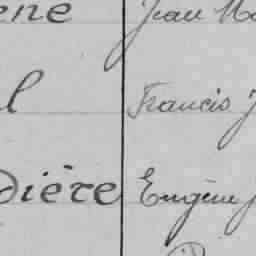 ène Jean
l Francis J
dière Eugène